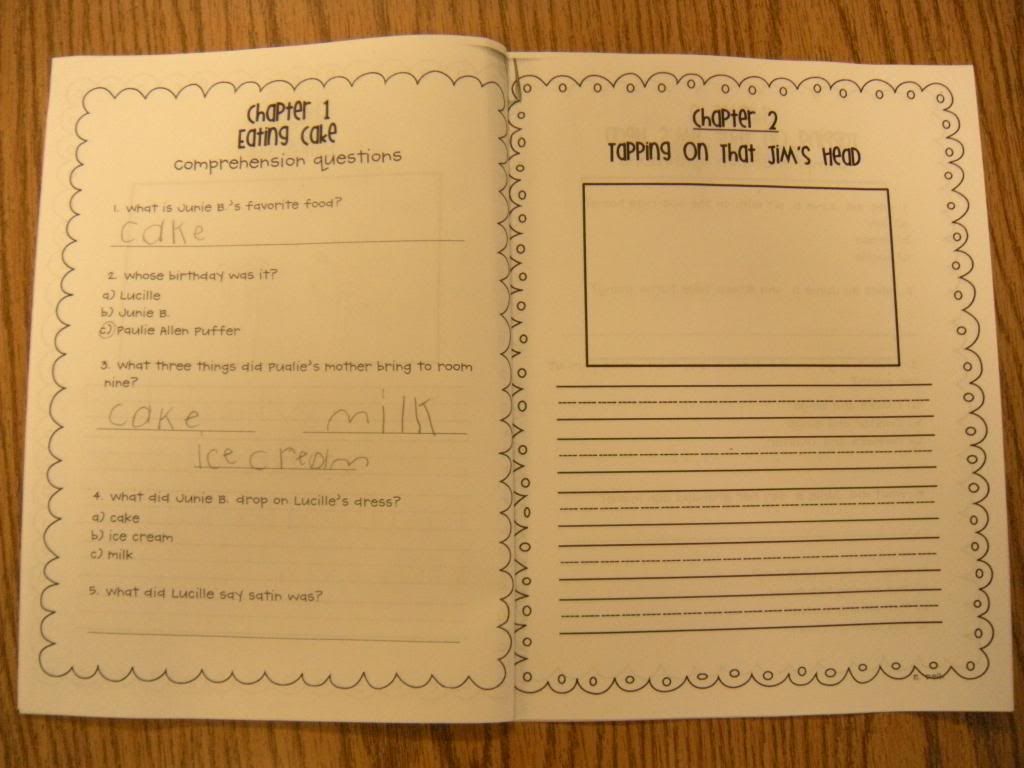 Chapter 1
Eating Cake
comprehension questions
1. What is Junie B.'s favorite food?
cake
2. Whose birthday was it?
a) Lucille
b) Junie B.
c) Paulie Allen Puffer
3. What three things did Pualie's mother bring to room
nine?
cake milk
ice cream
4. What did Junie B. drop on Lucille's dress?
a) cake
b) ice cream
c) milk
5. What did Lucille say satin was?
Chapter 2
Tapping On That Jim's Head